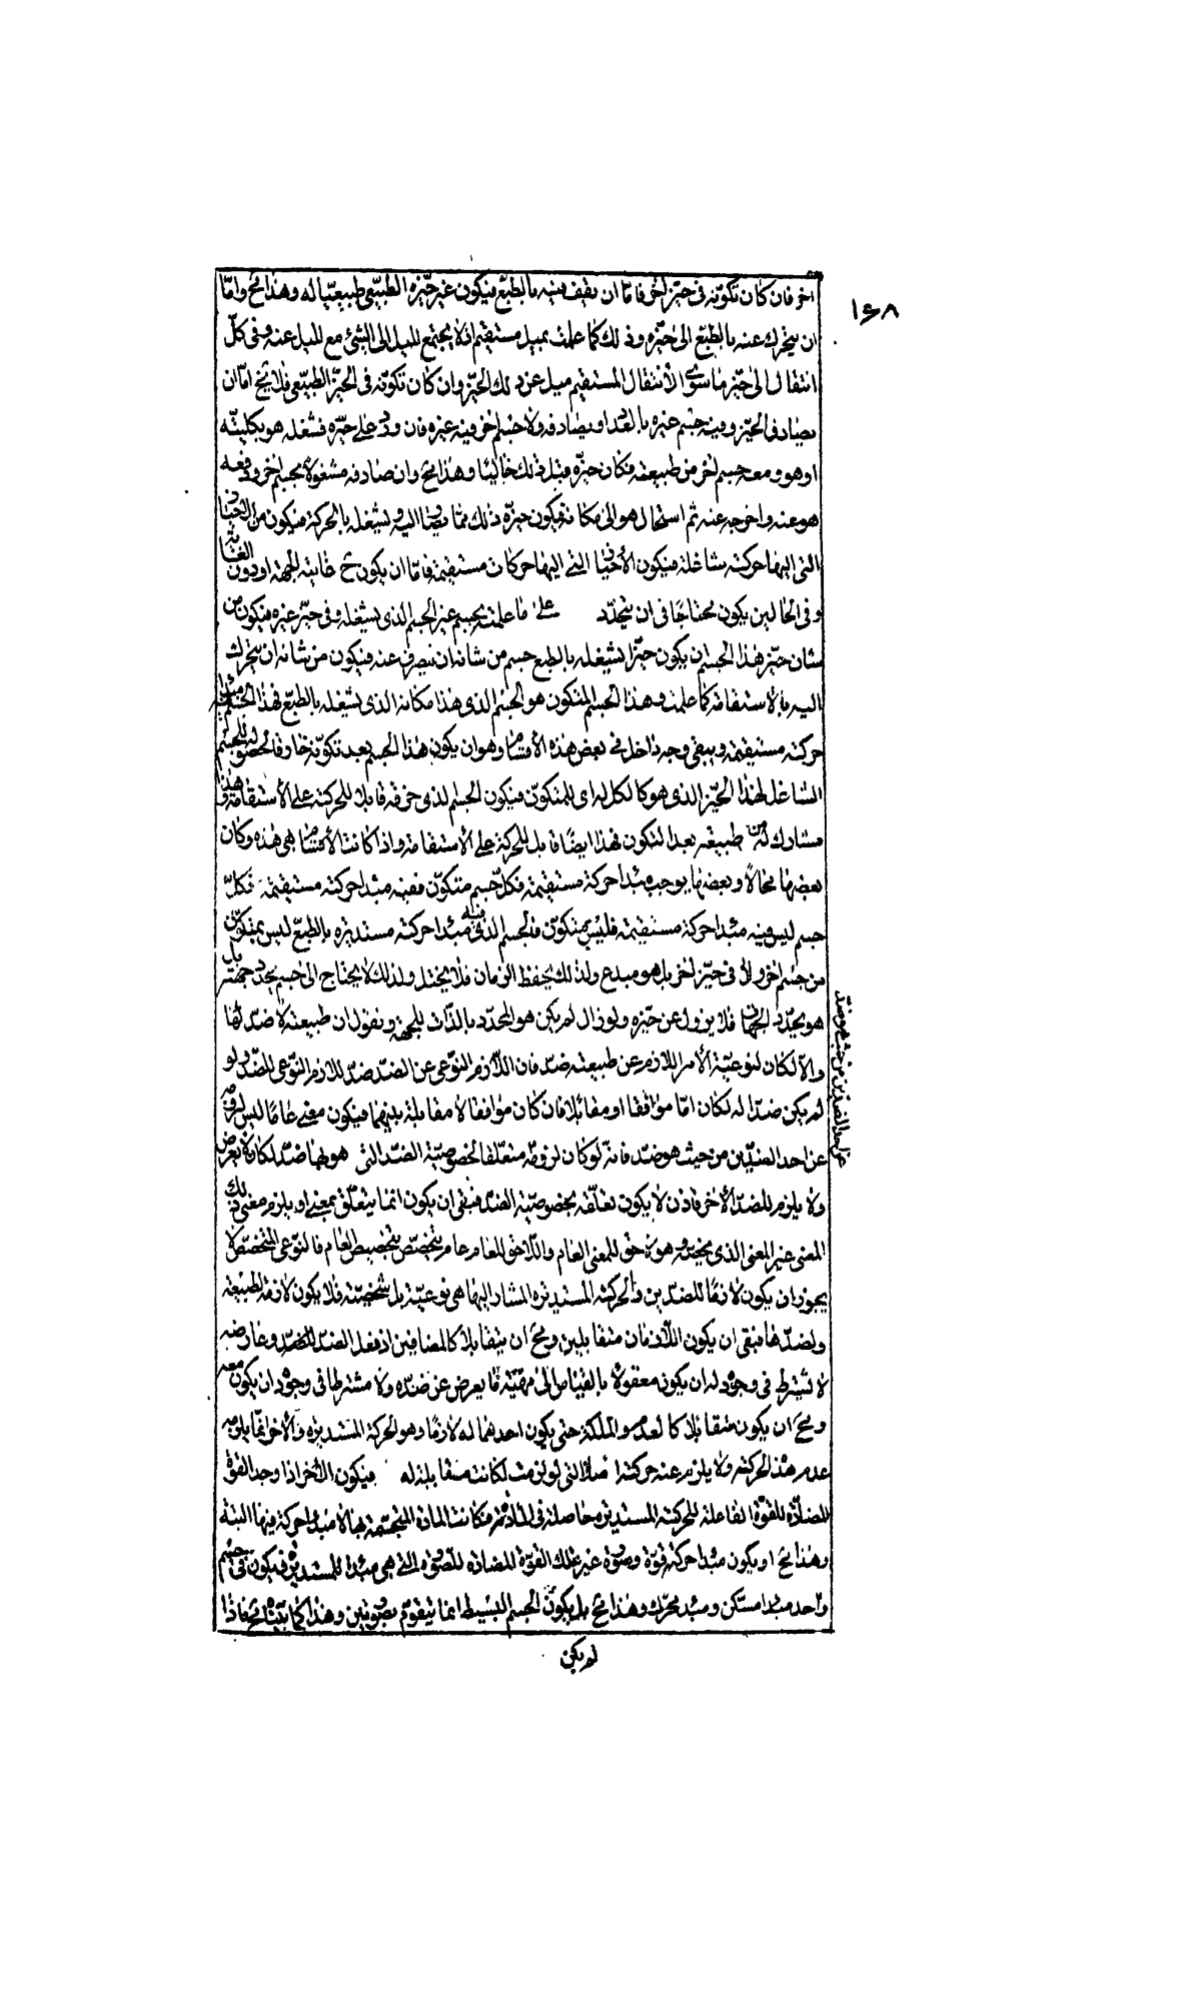 ١٦٨
اخر فان كان تكونه فى حيز اخر فاما ان يقف فيه بالطبع فيكون غير حيزه الطبيعى طبيعيا له وهذا مح واما
ان يتحرك عنه بالطبع الى حيزه وذلك كما علمت بميل مستقيم اذ لا يجتمع الميل الى الشئ مع الميل عنه وفى كل
انتقال الى حيز ما سوى الانتقال المستقيم ميل عن ذلك الحيز وان كان تكونه فى الحيز الطبيعى فلا يخ اما ان
يصادف الحيز وفيه جسم غيره بالعدد او يصادفه ولا جسم اخر فيه غيره فان ورد على حيزه فشغله هو بكليته
او هو ومعه جسم اخر من طبيعته فكان حيزه قبل ذلك خاليا وهذا مح وان صادفه مشغولا بجسم اخر ودفعه
هو عنه واخرجه عنه ثم استحال هو الى مكانه فيكون حيزه ذلك مما يصار اليه ويشغله بالحركة فيكون من الاحياز
التى اليها حركته مشاغلة فيكون الاحياز التى اليها حركات مستقيمة فاما ان يكون ح غاية الجهة او دون الغاية
وفى الحالين يكون محتاجا فى ان يتحدد على ما علمت بجسم غير الجسم الذى يشغله وفى حيز غيره فيكون من
شان حيز هذا الجسم ان يكون حيزا يشغله بالطبع جسم من شانه ان ينصرف عنه فيكون من شانه ان يتحرك
اليه بالاستقامة كما علمت وهذا الجسم المتكون هو الجسم الذى هذا مكانه الذى يشغله بالطبع فهذا الجسم فيه مبدا
حركته مستقيمة ويبقى وجه داخل فى بعض هذه الاقسام وهو ان يكون هذا الجسم بعد تكونه خارقا لحصوله الجسم
الشاغل لهذا الحيز الذى هو كالكل له اى للمتكون فيكون الجسم الذى خرقه قابلا للحركة على الاستقامة وهذا
مشارك له من طبيعته بعد التكون فهذا ايضا قابل للحركة على الاستقامة واذا كانت الاقسام هى هذه وكان
بعضها محالا وبعضها يوجب مبدا حركة مستقيمة فكل جسم متكون ففيه مبدا حركته مستقيمة فكل
جسم ليس فيه مبدا حركة مستقيمة فليس بمتكون فالجسم الذى فيه مبدا حركته مستديرة بالطبع ليس بمتكون
من جسم اخر ولا فى حيز اخر بل هو مبدع ولذلك يحفظ الزمان فلا يختل ولذلك لا يحتاج الى جسم يحدد جهته بل
هو يحدد الجهات فلا يزول عن حيزه ولو زال لم يكن هو المحدد بالذات للجهة ونقول ان طبيعته لا ضد لها
والا لكان لنوعية الامر اللازم عن طبيعته ضد فان اللازم النوعى عن الضد ضد للازم النوعى للضد ولو
لم يكن ضدا له لكان اما موافقا او مقابلا فان كان موافقا لا مقابلة بينهما فيكون معنى عاما ليس لزومه
عن احد الضدين من حيث هو ضد فانه لو كان لزومه متعلقا بخصوصية الضد التى هو بها ضد لكان لا يعرض
ولا يلزم للضد الاخر فاذن لا يكون تعلقه بخصوصية الضد فبقى ان يكون انما يتعلق بمعنى او يلزم معنى ذلك
المعنى غير المعنى الذى يخصه هو لاحق للمعنى العام واللاحق للعام عام يتخصص بتخصيص العام فالنوعى المتخصص لا
يجوز ان يكون لازما للضدين والحركة المستديرة المشار اليها هى نوعية بل شخصية فلا يكون لازمة لطبيعة
ولضدها فبقى ان يكون اللازمان متقابلين ومح ان يتقابلا كالمضافين اذ فعل الضد للضد وعارضه
لا يشترط فى وجود له ان يكون معقولا بالقياس الى مهية ما يعرض عن ضده ولا مشترطا فى وجوده ان يكون معه
ومح ان يكون متقابلا كالعدم والملكة حتى يكون احدهما له لازما وهو الحركة المستديرة والاخر انما يلزمه
عدم هذه الحركة ولا يلزم عنه حركته اصلا التى لو لزمت لكانت مقابلة له فيكون الاخر اذا وجد القوة
المضادة للقوة الفاعلة للحركة المستديرة حاصلة فى المادة كانت المادة المتجسمة بها لا مبدا حركة فيها البتة
وهذا مح او يكون مبدا حركة قوة وصورة غير تلك القوة المضادة للصورة التى هى مبدا للمستديرة فيكون فى جسم
واحد مبدا مسكن ومبدا محرك وهذا مح بل يكون الجسم البسيط انما يتقوم بصورتين وهذا كما بينا مح فاذا
لم يكن